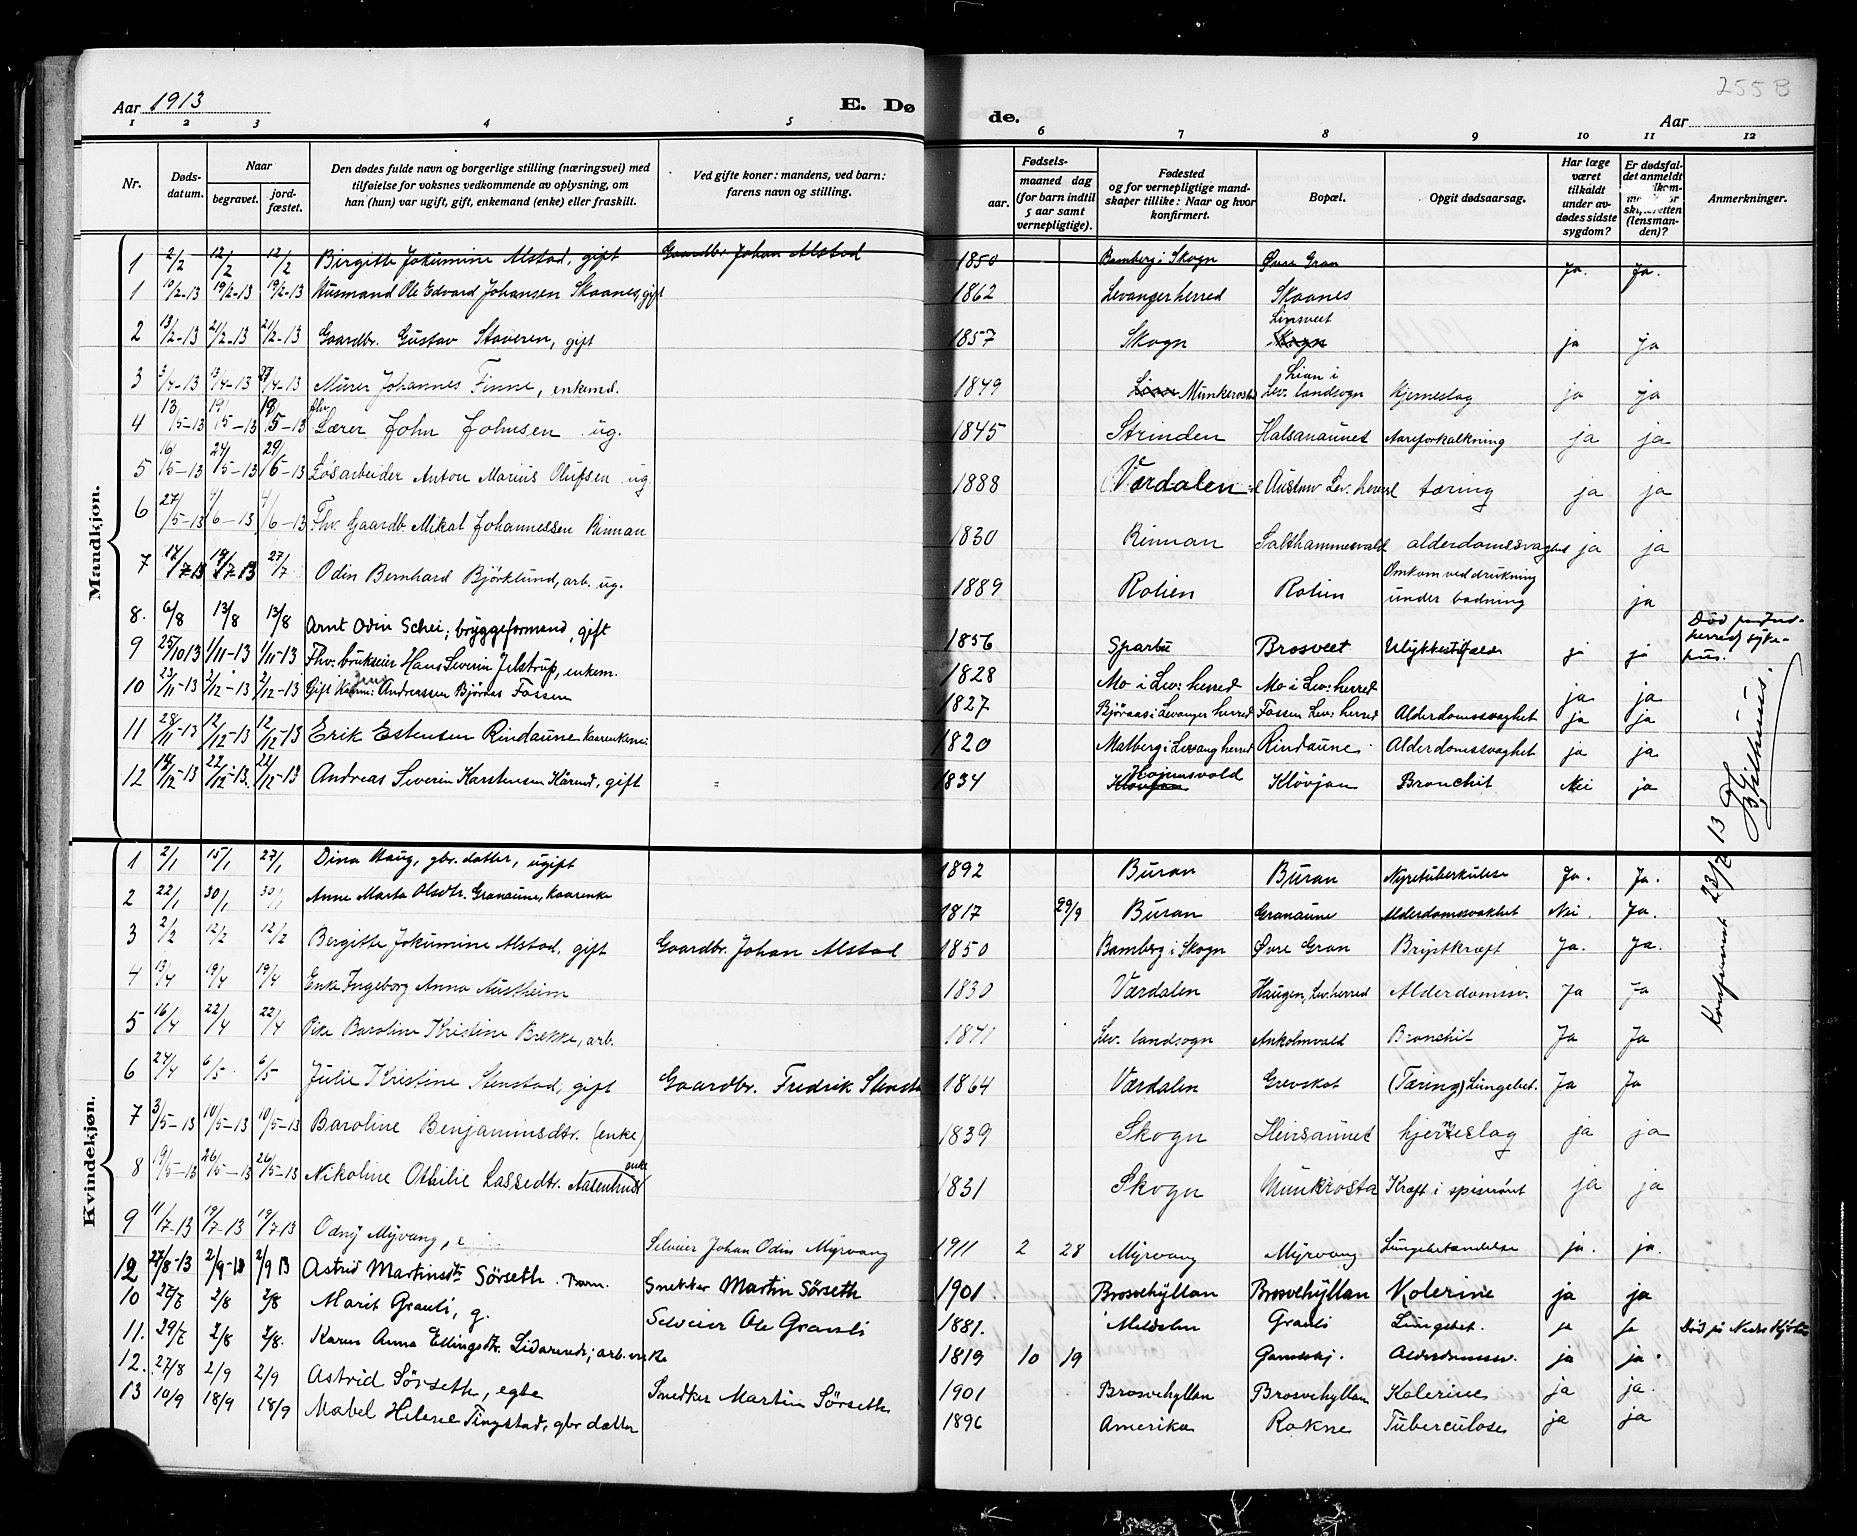 Aar 1913
E. Dø
de.
255 B
Aar
1 2 3 4 5 6 7 8 9 10 11 12
Nr.
Døds-
datum.
Naar
begravet.
jord-
fæstet.
Den dødes fulde navn og borgerlige stilling (næringsvei) med
tilføielse for voksnes vedkommende av oplysning, om
han (hun) var ugift, gift, enkemand (enke) eller fraskilt.
Ved gifte koner: mandens, ved barn:
farens navn og stilling.
Fødsels-
aar.
maaned dag
(for barn indtil
5 aar samt
vernepligtige).
Fødested
og for vernepligtige mand-
skaper tillike: Naar og hvor
konfirmert.
Bopæl.
Opgit dødsaarsag.
Har læge
været
tilkaldt
under av-
dødes sidste
sygdom?
Er dødsfal-
det anmeldt
skifteretten
(lensman-
den)?
Anmerkninger.
Mandkjøn.
1 2/2 12/2 12/2 Birgitte Jokumine Alstad, gift Gaardbr. Johan Alstad 1850 Bamberg i Skogn Øvre Gran Ja. Ja.
1 19/2-13 19/2-13 Husmand Ole Edvard Johansen Skaanes, gift 1862 Levanger herred Skaanes
2 13/2-13 21/2-13 21/2-13 Gaardbr. Gustav Staveren, gift 1857 Skogn Linsveet Skogn ja ja
3 3/4-13 13/4-13 27/4-13 Murer Johannes Finne, enkemd. 1849 Munkerostad Lian i Lev. landsogn Hjerneslag ja ja
4 13/5-13 19/5-13 19/5-13 fhv. Lærer John Johnsen ug. 1845 Strinden Halsanaunet Aareforkalkning ja ja
5 16/5-13 24/5-13 29/6-13 Løsarbeider Anton Marius Olufsen ug 1888 Værdalen Austnw Lev. herred tæring ja ja
6 27/5-13 4/6-13 4/6-13 Fhv. Gaardb. Mikal Johannessen Rinnan 1830 Rinnan Salthammervald alderdomssvaghet ja ja
7 17/7-13 19/7-13 27/7 Odin Bernhard Björklund, arb. ug. 1889 Rolien Rolien Omkom ved drukning under badning ja
8. 6/8 13/8 13/8 Arnt Odin Schei, bryggeformand, gift 1856 Sparbu Brosveet Ulykkestilfælde ja ja Død paa Ind-
herred syke-
hus.
9 25/10 13 1/11-13 1/11-13 Fhv. brukseier Hans Severin Jelstrup, enkem. 1828 Mo i Lev: herred Mo i Lev: herred ja ja
10 23/11-13 2/12-13 2/12-13 Gift Andersen Björaas Fossen 1827 Björaas i Levanger herred Fossen Lev: herred Alderdomssvaghet ja ja
11 28/11-13 12/12-13 12/12-13 Erik Estensen Rindaune kaarenkem: 1820 Malberg i Levang herred Rindaune Alderdomssvaghet ja ja
12 12/12-13 22/12-13. 22/12-13 Andreas Severin Karstensen gift " 1834 Hojemsvold Klövjan Klövjan Bronchit Nei ja
Konfirmert 23/2 13
Kvindekjøn.
1 2/1 15/1 27/1 Dina Haug, gbr. datter, ugift 1892 Buran Buran Nyretuberkulose Ja. Ja.
2 22/1 30/1 30/1 Anne Marta Olsdtr. Granaune, kaarenke 1817 29/9 Buran Granaune Alderdomssvakhet Nei. Ja.
3 2/2 12/2 12/2 Bergitte Jokumine Alstad, gift Gaardbr. Johan Alstad 1850 Bamberg i Skogn Øvre Gran Brystkræft Ja. Ja.
4 13/4 19/4 19/4 Enke Ingeborg Anna Austheim 1830 Værdalen Haugen, Lev. herred Alderdomssv. Ja Ja
5 16/4 22/4 22/4 Pike Baroline Kristine Brekke, arb. 1841 Lev. landsogn Ankolmvald Bronchit Ja Ja
6 27/4 6/5 6/5 Julie Kristine Stenstad, gift Gaardbr. Fredrik Stensta 1864 Værdalen Grevskot (Tæring) Lungebet. Ja Ja
7 3/5-13 10/5-13 10/5-13 Baroline Benjaminsdtr. (enke) 1839 Skogn Heirsaunet hjerneslag ja ja
8 19/5-13 26/5-13 26/5-13 Nikoline Othilie Lassedtr. Aasenhus enke 1831 Skogn Munkrosta Kræft i spiserøret ja ja
9 11/7-13 19/7-13 19/7 13 Odny Myrvang, Selveier Johan Odin Myrvang 1911 2 28 Myrvang Myrvang Lungebetændelse ja. ja.
12 27/8-13 2/9-13 2/9 13 Astrid Martinsdtr Sörseth. Barn. Snekker Martin Sörseth 1901. Brosvehyllan Brosvehyllan Kolerine ja ja
10 22/7 2/8 2/8 Marit Grauli, g. Selveier Ole Grauli 1881. Meldalen Grauli Lungebet. ja ja Død på
11. 29/7 7/8 7/8. Karen Anna Ellingsdtr. Lidarende; arb. enke 1819 10 19 Alderdomssv. ja ja.
12. 27/8 2/9 2/9 Astrid Sörseth, egte Snedker Martin Sörseth 1901 Brosvehyllan Brosvehyllan Kolerine ja ja.
13 10/9 18/9 18/9 Mabel Helene Tingstad, gbr datter 1896 Amerika Rokne Tuberculose ja ja